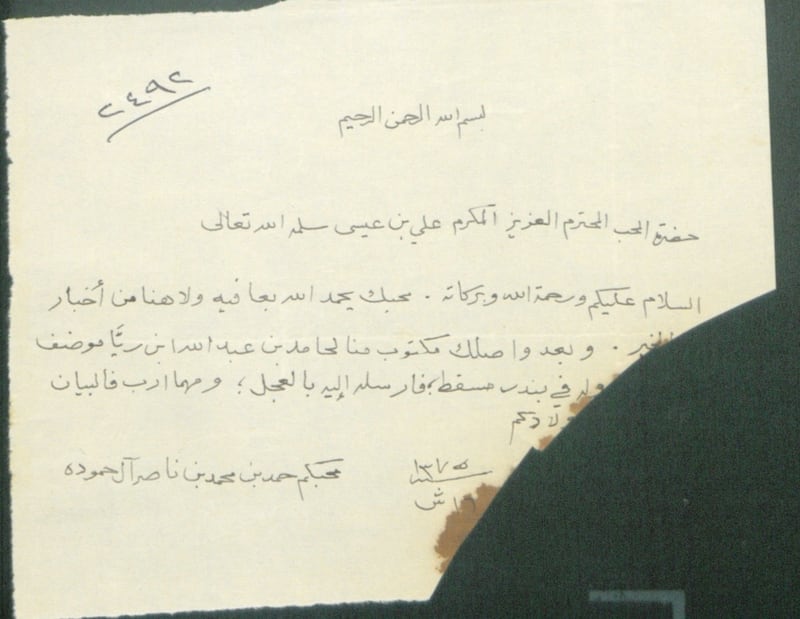 ٢٤٩٢
بسم الله الرحمن الرحيم
حضرة المحب المحترم العزيز المكرم علي بن عيسى سلمه الله تعالى
السلام عليكم ورحمة الله وبركاته . محبك بحمد الله بعافيه ولا هنا من أخبار
الخير . وبعد واصلك مكتوب منا لحامد بن عبد الله ابن ريَّا موضف
في بندر مسقط، فارسله إليه بالعجل؛ ومهما ارب فالبيان
ولادكم
محبكم حمد بن محمد بن ناصر آل حموده
سنة ١٣٧٥
ش